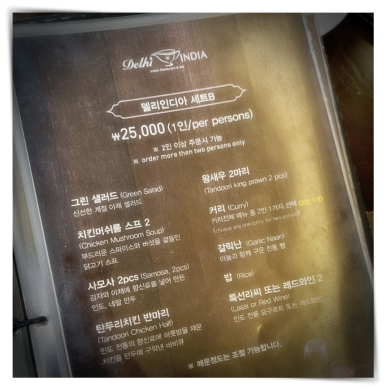 Delhi INDIA
Indian Restaurant & Bar
델리인디아 세트B
₩25,000 (1인/per persons)
※ 2인 이상 주문시 가능
※ order more than two persons only
그린 샐러드 (Green Salad)
신선한 계절 야채 샐러드
치킨머쉬룸 스프 2
(Chicken Mushroom Soup)
부드러운 스파이스와 버섯을 곁들인
닭고기 스프
사모사 2pcs (Samosa, 2pcs)
감자와 야채에 향신료를 넣어 만든
인도, 네팔 만두
탄두리치킨 반마리
(Tandoori Chicken Half)
인도 전통의 향신료에 하룻밤을 재운
치킨을 탄두에 구워낸 바비큐
왕새우 2마리
(Tandoori king prawn 2 pcs)
커리 (Curry)
커리전체 메뉴 중 2인 1가지 선택
(choose any one curry for two persons)
갈릭난 (Garlic Naan)
마늘과 함께 구운 전통 빵
밥 (Rice)
특선라씨 또는 레드와인 2
(Lassi or Red Wine)
인도 전통 요구르트 또는 레드와인
※ 매운정도는 조절 가능합니다.